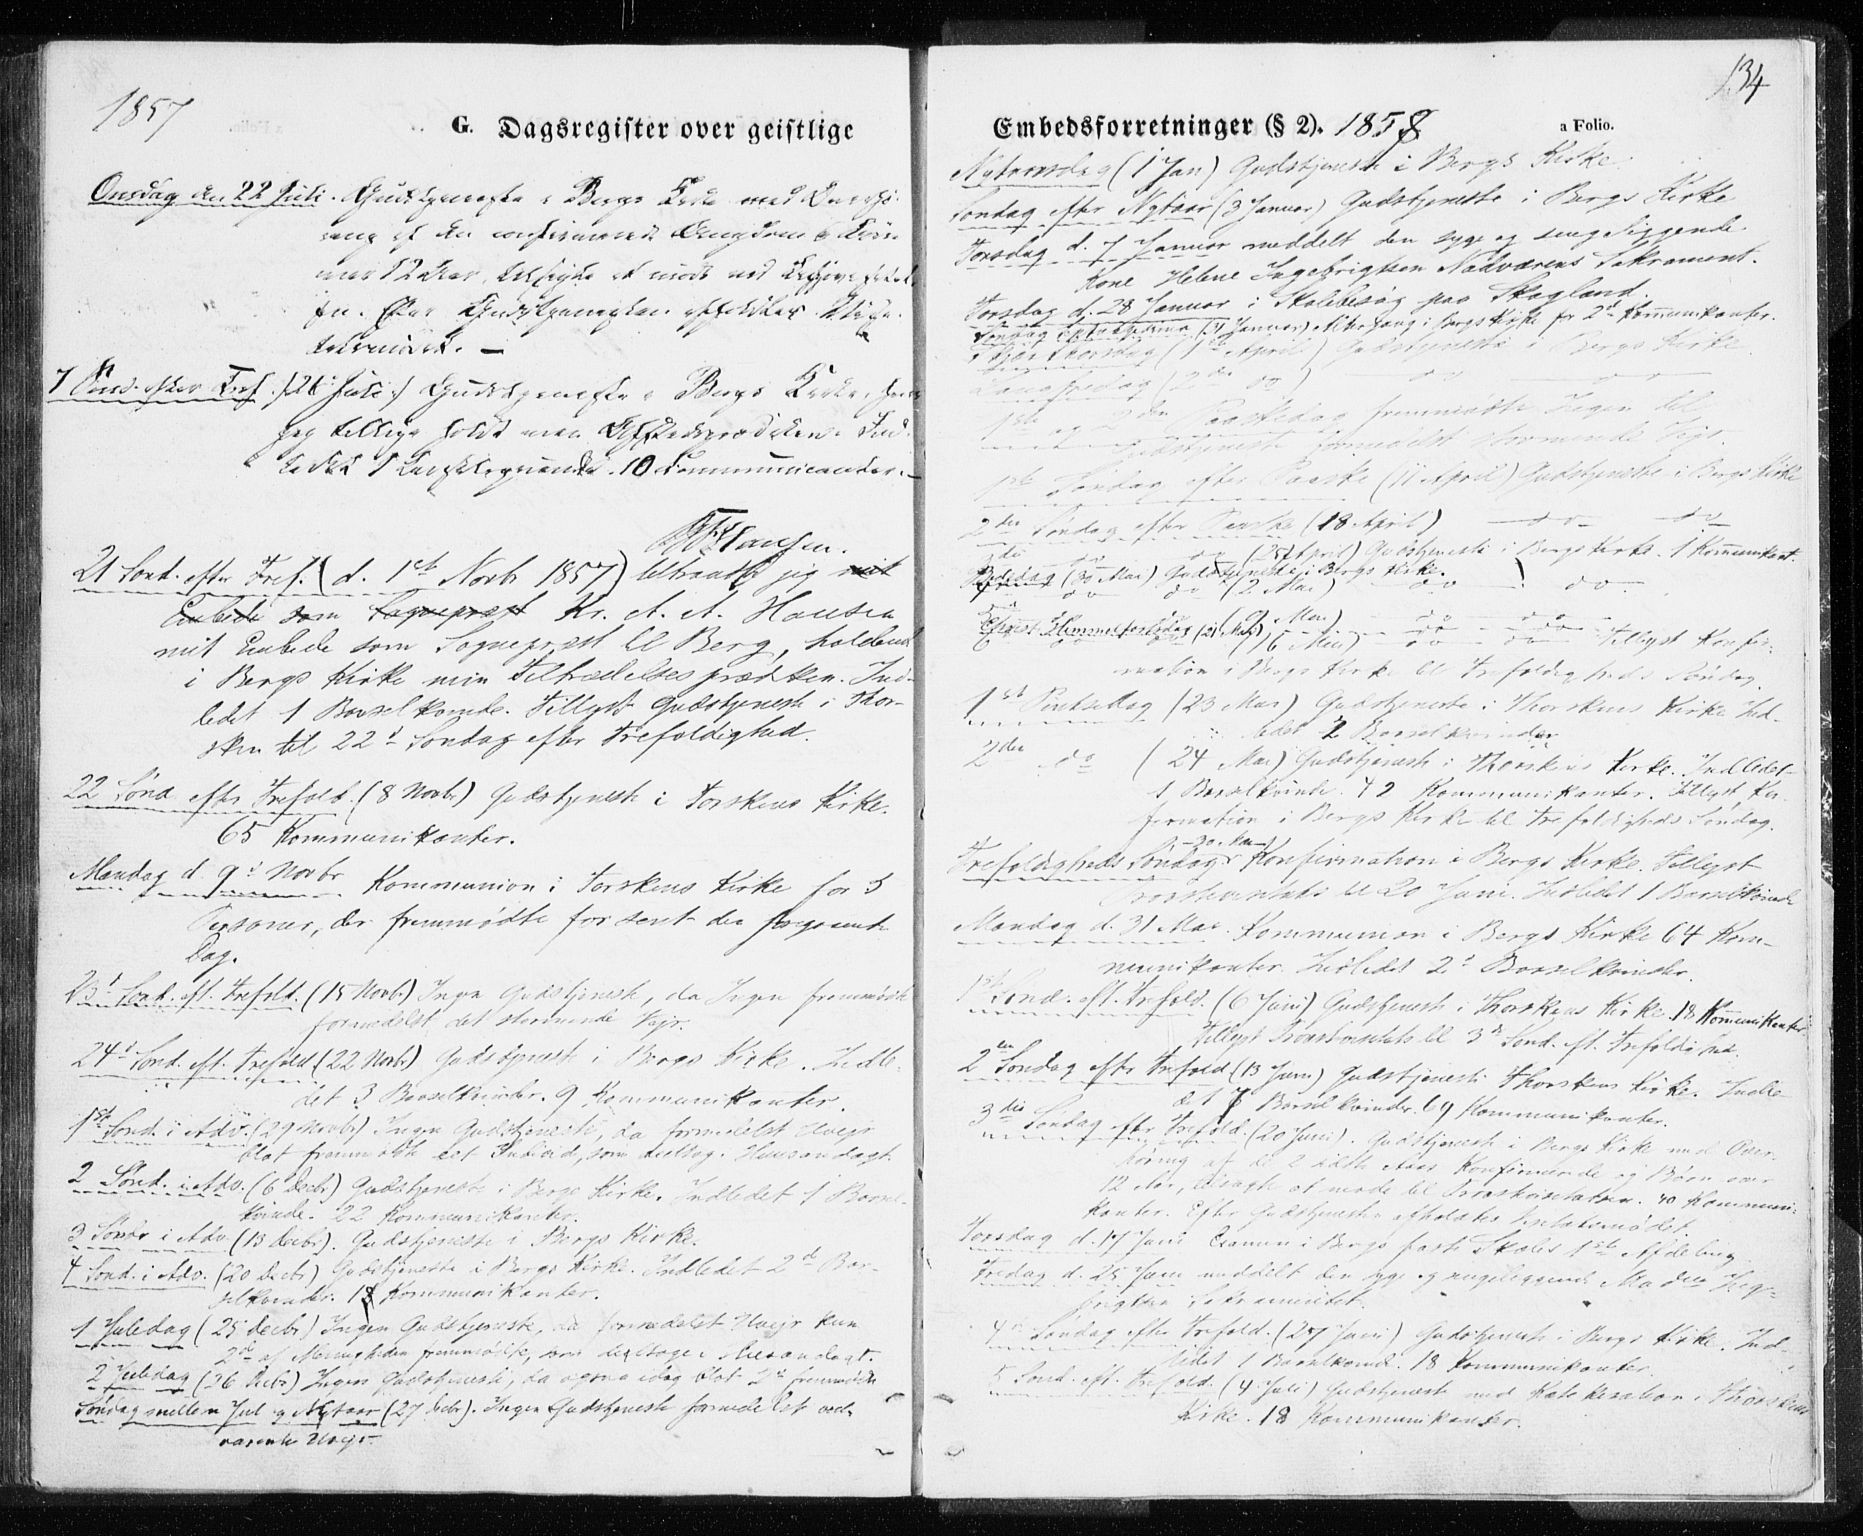 1857
G. Dagsregister over geistlige
Onsdag den 22 Juli. Gudstjeneste i Bergs Kirke med
7 Sönd. efter Tref. (26 Juli) Gudstjeneste i Bergs Kirke,
jeg tillige holdt min Afskedsprædiken. Ind-
ledet 1 10 Communicanter.
Hansen.
21 Sönd. efter Tref. (d. 1ste Novbr 1857) tiltraadte jeg mit
Embede som Sognepræst Kr. A. A. Hansen
mit Embede som Sognepræst til Berg, holdende
i Bergs Kirke min Tiltrædelsesprædiken. Ind-
ledet 1 Barselkvinde. Tillyst Gudstjeneste i Thor-
sken til 22d Söndag efter Trefoldighed.
22 Sönd efter Trefold. (8 Novbr) Gudstjeneste i Torskens Kirke.
65 Kommunikanter.
Mandag d. 9d Novbr Kommunion i Torskens Kirke for 3
Personer, der fremmödte for sent den foregaaende
Dag.
23d Sönd. eft. Trefold. (15 Novb.) Ingen Gudstjeneste, da Ingen fremmödte
formedelst det stormende Vejr.
24d Sönd. eft. Trefold (22 Novb.) Gudstjeneste i Bergs Kirke. Indle-
det 3 Barselkvinder. 9 Kommunikanter.
1ste Sönd. i Adv. (29 Novb.) Ingen Gudstjeneste, da formedelst Uvejr
blot fremmödte eet Individ, som deeltog i Huusandagt.
2 Sönd. i Adv. (6 Decbr) Gudstjeneste i Bergs Kirke. Indledet 1 Barsel-
kvinde. 22 Kommunikanter.
3 Sönd. i Adv (13 Decbr). Gudstjeneste i Bergs Kirke.
4 Sönd. i Adv. (20 Decbr) Gudstjeneste i Bergs Kirke. Indledet 2d Bar-
selkvinder. 18 Kommunikanter.
1 Juledag (25 Decbr) Ingen Gudstjeneste, da formedelst Uvejr kun
2de af Menigheden fremmödte, som deeltoge i Husandagt.
2 Juledag (26 Decbr) Ingen Gudstjeneste, da ogsaa idag blot 2de fremmödte
Söndag mellem Jul og Nytaar (27 Decbr). Ingen Gudstjeneste formedelst ved-
varende Uvejr.
134
Embedsforretninger (§ 2). 1858
a Folio.
Nytaarsdag (1 Jan) Gudstjeneste i Bergs Kirke.
Söndag efter Nytaar (3 Januar) Gudstjeneste i Bergs Kirke
Torsdag d. 7 Januar meddelt den syge og sengeliggende
Kone Helene Ingebrigtsen Nadværens Sakrament.
Torsdag d. 28 Januar i Skolebesög paa Skagland.
Söndag (31 Januar) Altergang i Bergs Kirke for 2de Kommunikanter.
Skjær Thorsdag (1ste April) Gudstjeneste i Bergs Kirke
Langfredag (2den do) do do
1ste og 2den Paaskedag fremmödte Ingen til
Gudstjeneste formedelst stormende Vejr.
1ste Söndag efter Paaske (11 April) Gudstjeneste i Bergs Kirke
2den Söndag efter Paaske (18 April) do do
3die do do (25 April) Gudstjeneste i Bergs Kirke. 1 Kommunikant.
Bededag (30 Mai) Gudstjeneste i Bergs Kirke.
do do (2 Mai) do do
(9 Mai) do do
Christi Himmelfartsdag
6 do do (16 Mai) do do Tillyst Konfir-
mation i Bergs Kirke til Trefoldigheds Söndag.
1ste Pintsedag (23 Mai) Gudstjeneste i Thorskens Kirke Ind-
ledet 2 Barselkvinder
2den do (24 Mai) Gudstjeneste i Thorskens Kirke. Indledet
1 Barselkvinde. 72 Kommunikanter. Tillyst Kon-
firmation i Bergs Kirke til Trefoldigheds Söndag.
30 Mai
Trefoldigheds Söndag Konfirmation i Bergs Kirke. Tillyst
Provstevisitats til 20 Juni. Indledet 1 Barselkvinde
Mandag d. 31 Mai. Kommunion i Bergs Kirke 64 Kom-
munikanter. Indledet 2d Barselkvinder.
1ste Sönd. eft. Trefold. (6 Juni) Gudstjeneste i Thorskens Kirke. 18 Kommunikanter
Tillyst Provstevisitats til 3d Sönd. eft. Trefoldighed.
2den Söndag efter Trefold (13 Juni) Gudstjeneste Thorskens Kirke. Indle-
det 7 Barselkvinder. 69 Kommunikanter.
3die Söndag efter Trefold. (20 Juni). Gudstjeneste i Bergs Kirke med Over-
höring af de 2 sidste Aars Konfirmerede og Börn over
12 Aar, tilsagte at möde til Provstevisitatsen. 40 Kommuni-
kanter. Efter Gudstjenesten afholdtes Visitatsmödet.
Torsdag d. 17 Juni Examen i Bergs faste Skoles 1ste Afdeling
Fredag d. 25 Juni meddelt den syge og sengeliggende
Sakramentet.
4de Söndag efter Trefold. (27 Juni) Gudstjeneste i Bergs Kirke. Ind-
ledet 1 Barselkvinde. 18 Kommunikanter.
5 Sönd. eft. Trefold. (4 Juli) Gudstjeneste med Katekisation i Thorskens
Kirke. 18 Kommunikanter.